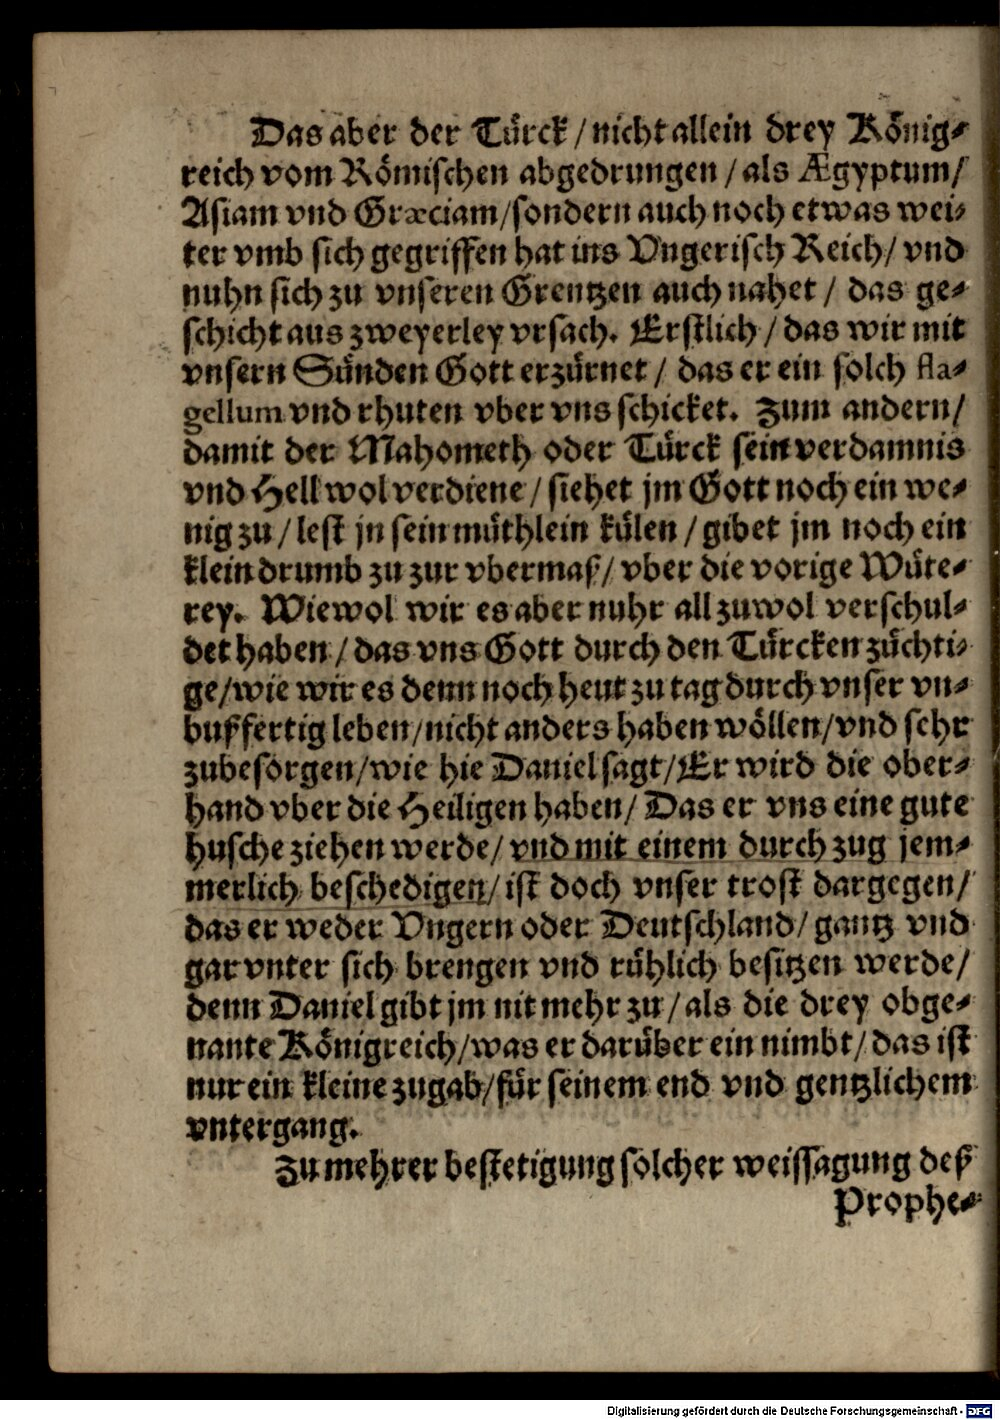 Das aber der Tuͤrck / nicht allein drey Koͤnig⸗
reich vom Roͤmischen abgedrungen / als Ægyptum /
Asiam vnd Græciam / sondern auch noch etwas wei⸗
ter vmb sich gegriffen hat ins Vngerisch Reich / vnd
nuhn sich zu vnseren Grentzen auch nahet / das ge⸗
schicht aus zweyerley vrsach. Erstlich / das wir mit
vnsern Suͤnden Gott erzuͤrnet / das er ein solch fla⸗
gellum vnd rhuten vber vns schicket. Zum andern /
damit der Mahometh oder Tuͤrck sein verdamnis
vnd Hell wol verdiene / siehet jm Gott noch ein we⸗
nig zu / lest jn sein muͤthlein kuͤlen / gibet jm noch ein
klein drumb zu zur vbermaß / vber die vorige Wuͤte⸗
rey. Wiewol wir es aber nuhr all zuwol verschul⸗
det haben / das vns Gott durch den Tuͤrcken zuͤchti⸗
ge / wie wir es denn noch heut zu tag durch vnser vn⸗
bußfertig leben / nicht anders haben woͤllen / vnd sehr
zubesorgen / wie hie Daniel sagt / Er wird die ober⸗
hand vber die Heiligen haben / Das er vns eine gute
husche ziehen werde / vnd mit einem durch zug jem⸗
merlich beschedigen / ist doch vnser trost dargegen /
das er weder Vngern oder Deutschland / gantz vnd
gar vnter sich brengen vnd ruͤhlich besitzen werde /
denn Daniel gibt jm nit mehr zu / als die drey obge⸗
nante Koͤnigreich / was er daruͤber ein nimbt / das ist
nur ein kleine zugab / fuͤr seinem end vnd gentzlichem
vntergang.
Zu mehrer bestetigung solcher weissagung deß
Prophe⸗
Digitalisierung gefördert durch die Deutsche Forschungsgemeinschaft - DFG